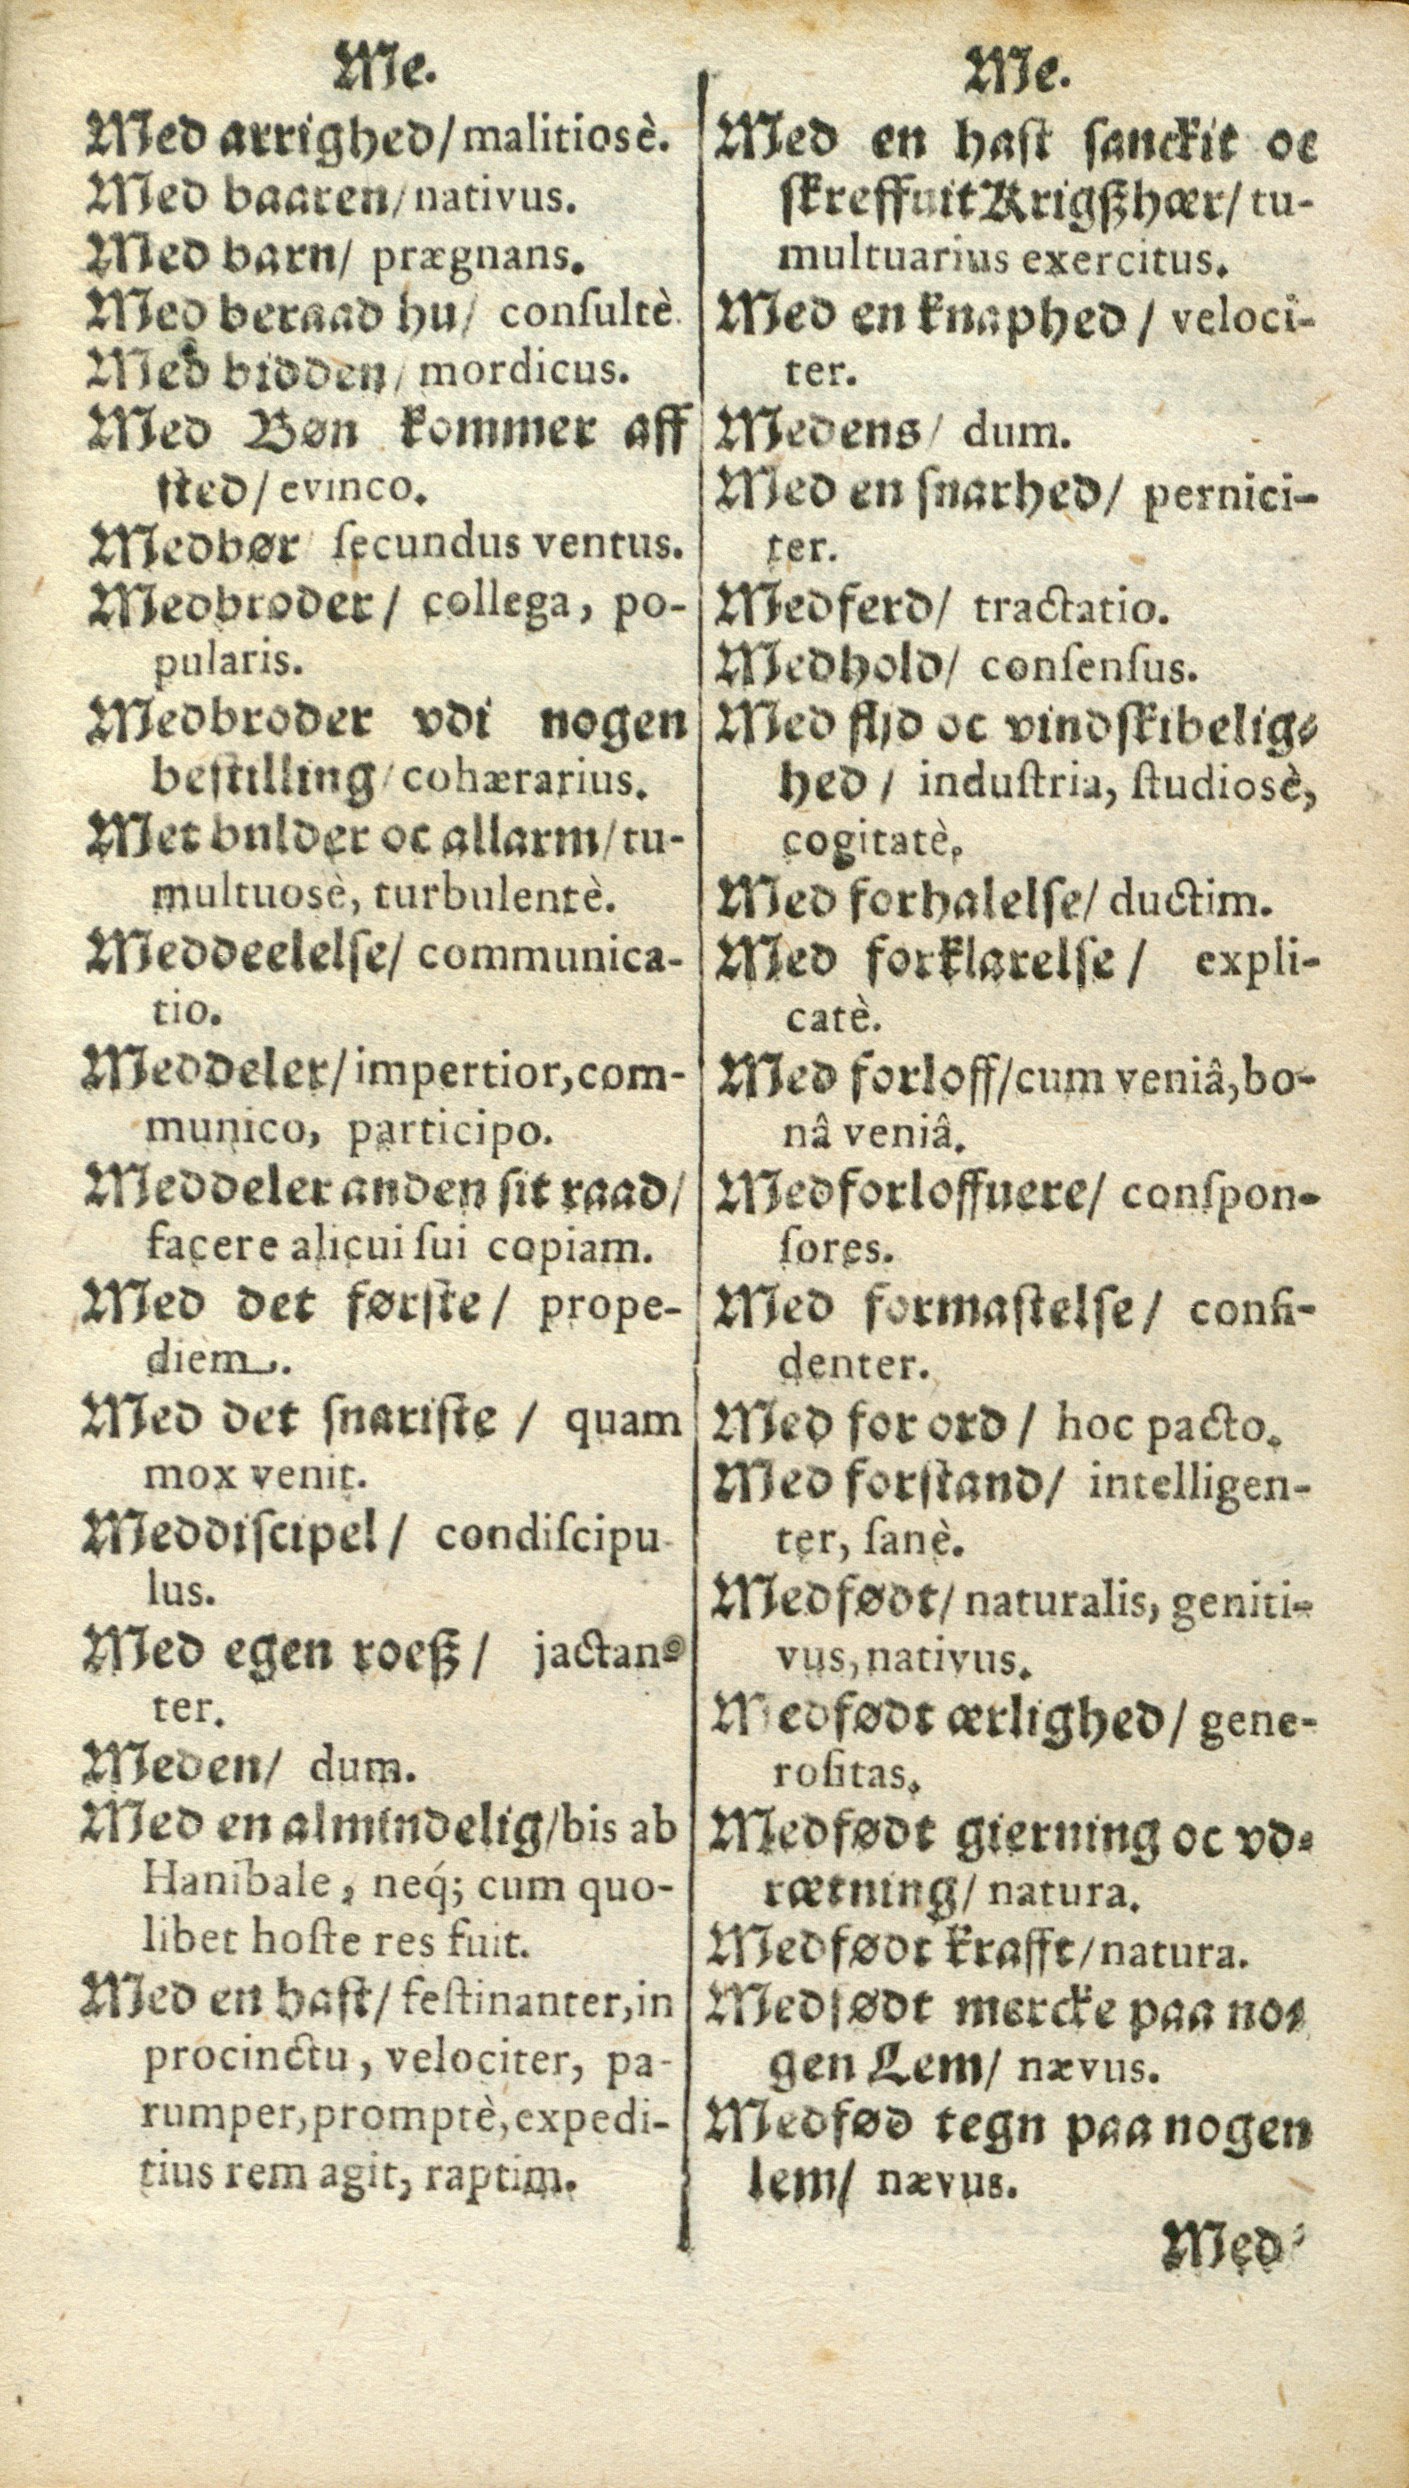 Me.
Med arrighed/malitiosè.
Med baaren/nativus.
Med barn/ prægnans.
Med beraad hu/ conſultè.
Med bidden/mordicus.
Med Bøn kommer aff
ſted/evinco.
Medbør/ ſecundus ventus.
Medbroder/ collega, po-
pularis.
Medbroder vdi nogen
beſtilling/cohærarius.
Met bulder oc allarm/tu-
multuosè, turbulentè.
Meddeelelſe/ communica-
tio.
Meddeler/impertior,com-
munico, participo.
Meddeler anden ſit raad/
facere alicui ſui copiam.
Med det førſte/ prope-
diem.
Med det ſnariſte/ quam
mox venit.
Meddiſcipel/ condiſcipu-
lus.
Med egen roeß/ jactan-
ter.
Meden/ dum.
Med en almindelig/bis ab
Hanibale, neq́; cum quo-
libet hoſte res fuit.
Med en haſt/feſtinanter,in
procinctu, velociter, pa-
rumper,promptè,expedi-
tius rem agit, raptim.
Me.
Med en haſt ſanckit oc
ſkreffuit Krigßhær/tu-
multuarius exercitus.
Med en knaphed/ veloci-
ter.
Medens/ dum.
Med en ſnarhed/ pernici-
ter.
Medferd/ tractatio.
Medhold/ conſenſus.
Med flijd oc vindſkibelig-
hed/ induſtria, ſtudiosè,
cogitatè.
Med forhalelſe/ductim.
Med forklarelſe/ expli-
catè.
Med forloff/cum veniâ,bo-
nâ veniâ.
Medforloffuere/ conſpon-
ſores.
Med formaſtelſe/ confi-
denter.
Med for ord/ hoc pacto.
Med forſtand/ intelligen-
ter, ſanè.
Medfødt/naturalis, geniti-
vus,nativus.
Medfødt ærlighed/gene-
roſitas.
Medfødt gierning oc vd-
rætning/natura.
Medfødt krafft/natura.
Medfødt mercke paa no-
gen Lem/ nævus.
Medfød tegn paa nogen
lem/ nævus.
Med-